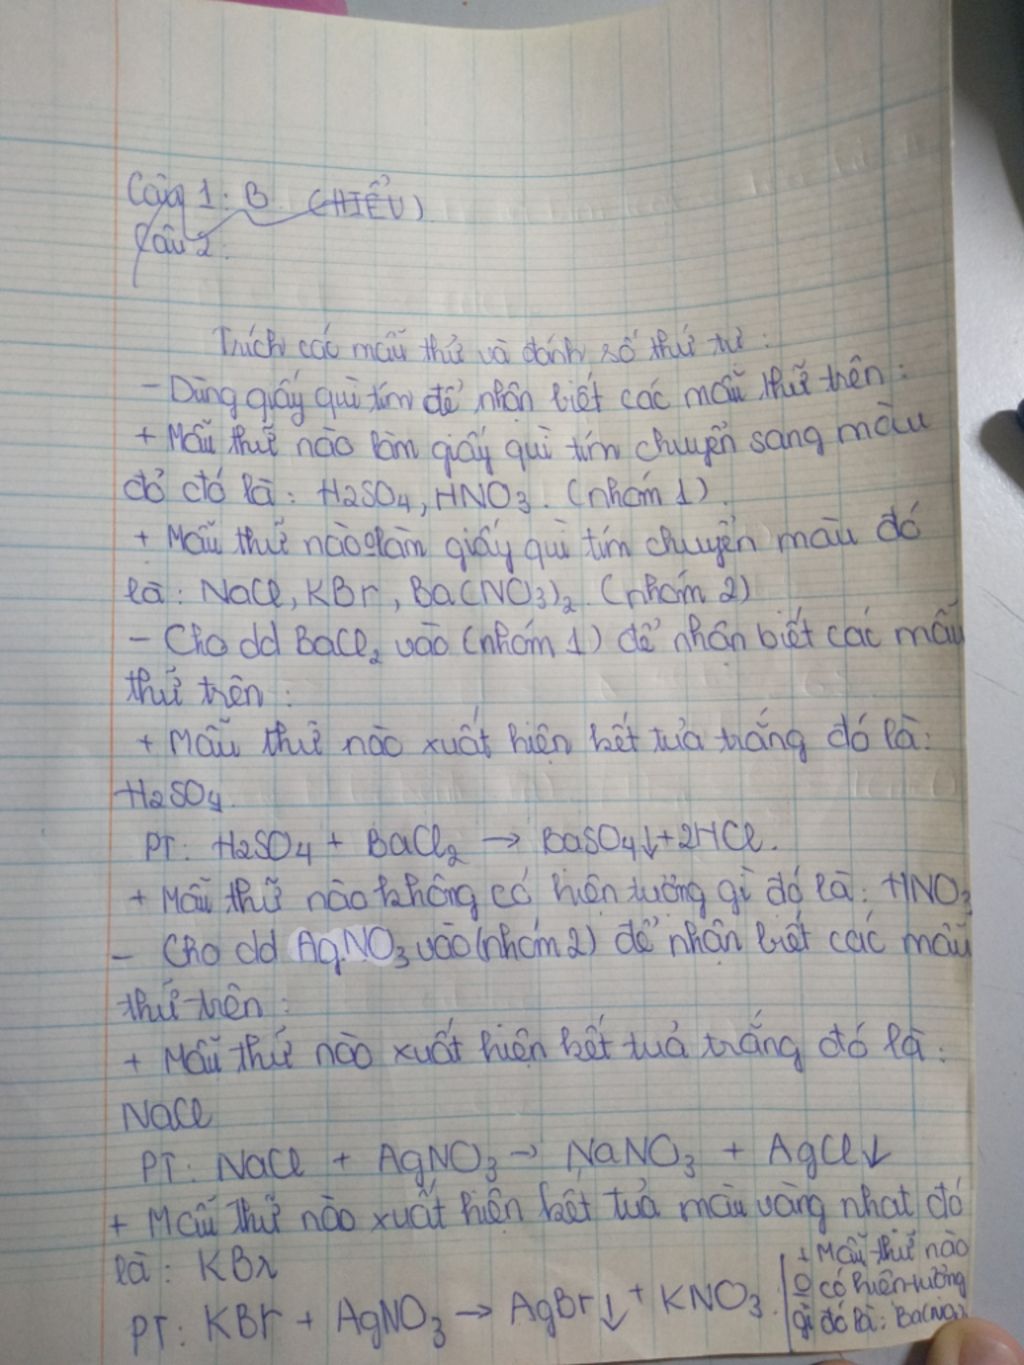 Câu 1: B (HIỂU)
Câu 2:
Trích các mẫu thử và đánh số thứ tự:
- Dùng giấy quì tím để nhận biết các mẫu thử trên:
+ Mẫu thử nào làm giấy quì tím chuyển sang màu
đỏ đó là: H2SO4, HNO3. (nhóm 1).
+ Mẫu thử nào o làm giấy quì tím chuyển màu đó
là: NaCl, KBr, Ba(NO3)2. (nhóm 2)
- Cho dd BaCl2 vào (nhóm 1) để nhận biết các mẫu
thử trên:
+ Mẫu thử nào xuất hiện kết tủa trắng đó là:
H2SO4.
PT: H2SO4 + BaCl2 → BaSO4↓ + 2HCl.
+ Mẫu thử nào không có hiện tượng gì đó là: HNO3
- Cho dd AgNO3 vào (nhóm 2) để nhận biết các mẫu
thử trên:
+ Mẫu thử nào xuất hiện kết tuả trắng đó là:
NaCl
PT: NaCl + AgNO3 → NaNO3 + AgCl↓
+ Mẫu thử nào xuất hiện kết tuả màu vàng nhạt đó
là: KBr
PT: KBr + AgNO3 → AgBr↓ + KNO3.
+ Mẫu thử nào
o có hiện tượng
gì đó là: Ba(NO3)2